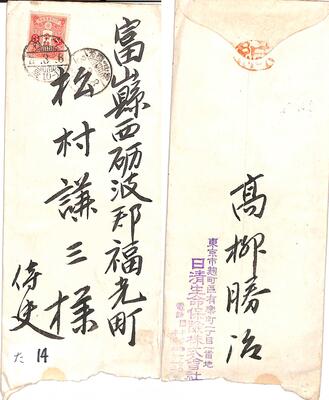 富山縣西砺波郡福光町
松村謙三様
侍史
た 14
高柳勝治
東京市麹町區有楽町一丁目一番地
日清生命保険株式會社